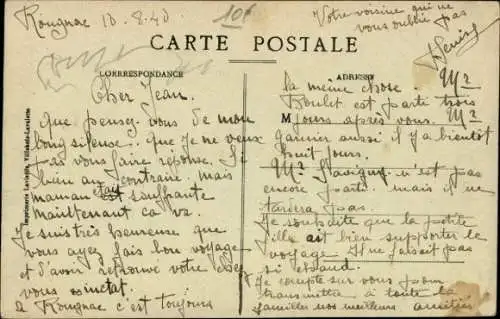 Rougnac 10-8-40
106
Votre voisine qui ne
vous oublie pas
CARTE POSTALE
CORRESPONDANCE
ADRESSE
Imprimerie Lavialle, Villebois-Lavalette
Cher Jean.
que pensez vous de mon
long silense. que Je ne veux
pas vous faire réponse. Si
bien au contraire. mais
maman était souffrante
maintenant ca va.
Je suis très heureuse que
vous ayez fais bon voyage
et d'avoir retrouvé votre chez
vous
a Rougnac c'est toujours
la même chose. Mr
Poulet est parti trois
M jours après vous. Mr
Garnier aussi il y a bientôt
huit jours.
Mr Savigny n'est pas
encore parti. mais il ne
tardera pas.
Je souhaite que la petite
fille ait bien supporter le
voyage. Il ne faisait pas
si chaud.
Je compte sur vous pour
transmettre à toute la
famille nos meilleurs amitiés